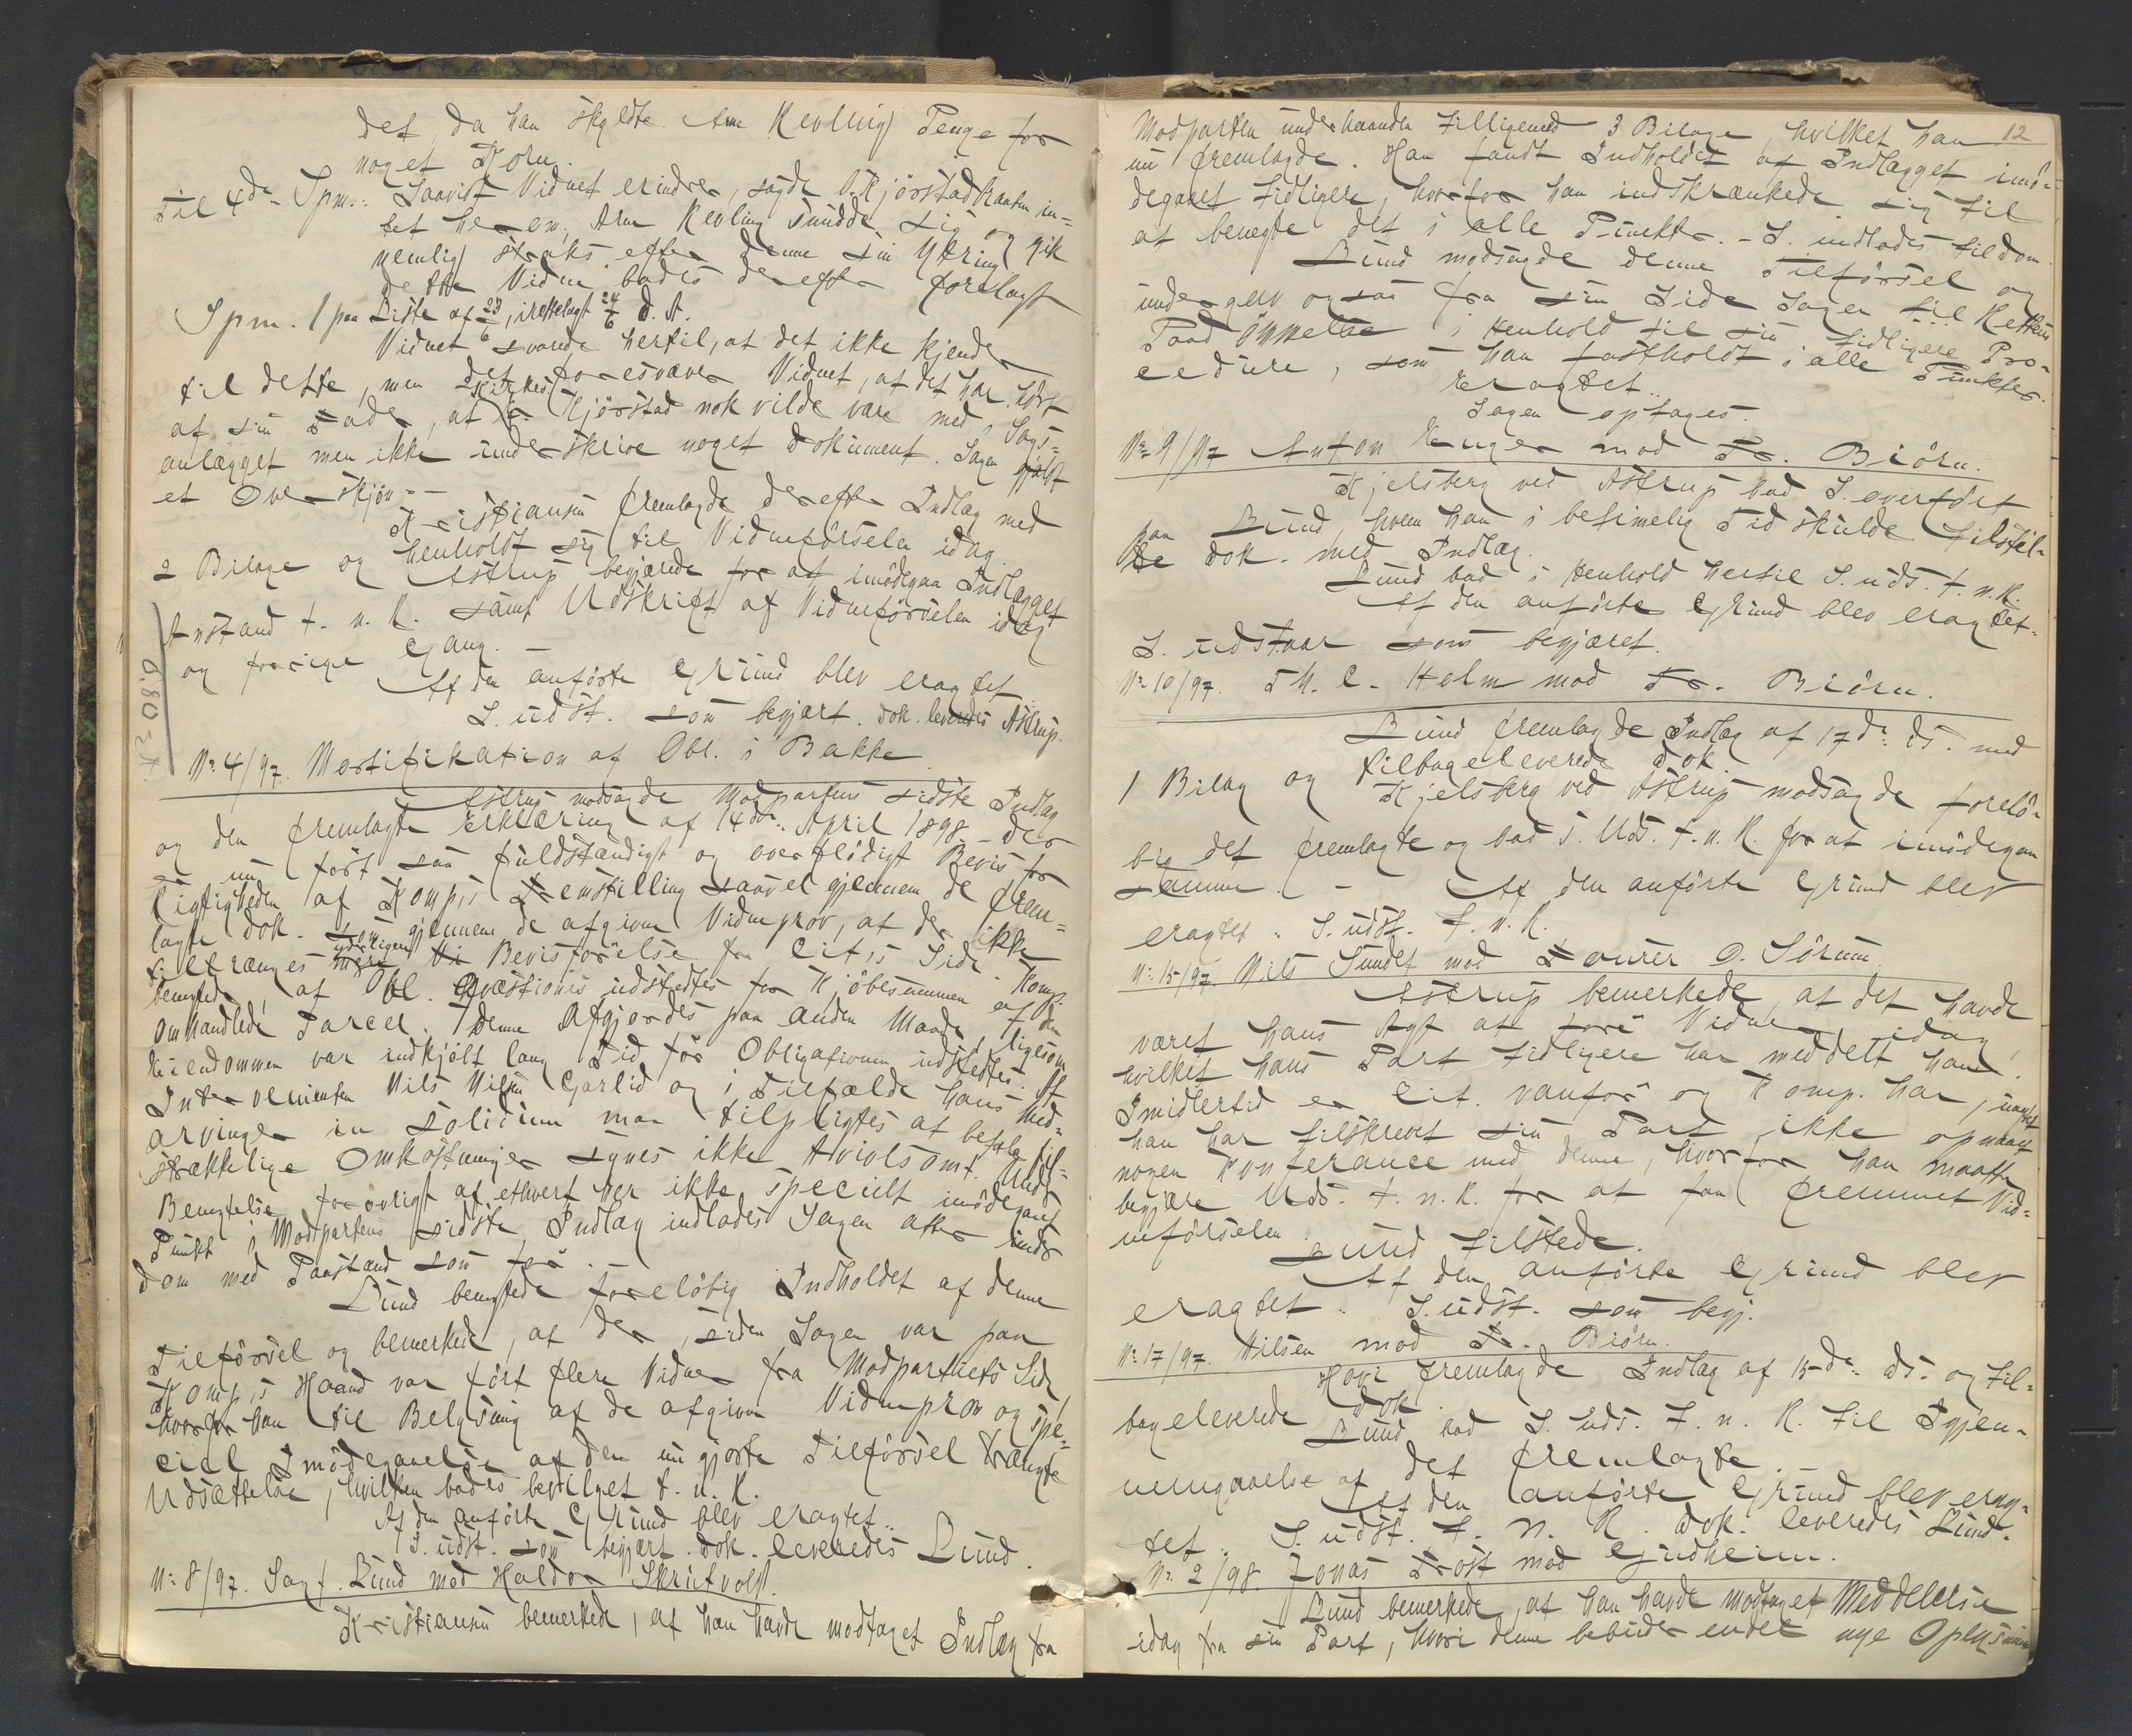 det, da han skyldte Arne Kevling Penge for
noget Korn.
Til 4de Spm.: Saavidt Vidnet erindrer, sagde O. Kjörstadkraaken in-
tet herom, Arne Kevling snudde sig og gik
nemlig straks efter denne sin Ytring
dette Vidne bades derefter forelagt
Spm. 1 paa Liste af 23/6, irettelagt 24/6 d. A.
Vidnet svarede hertil, at det ikke kjender
til dette, men det foresvæver Vidnet, at det har hört
af sin Fader, at Kjörstad nok vilde være med i Sags-
anlægget men ikke underskrive noget Dokument. Sagen gjaldt
et Overskjön. -
Kristiansen fremlagde derefter Indlæg med
2 Bilage og henholdt sig til Vidneförselen idag.
Astrup begjærede for at imödegaa Indlægget
Anstand t. n. R. samt Udskrift af Vidneförselen idag
og forrige Gang. -
Af den anförte Grund blev eragtet:
S. udst. som begjært. Dok. leveredes Astrup.
0,80
No 4/97. Mortifikation af Obl. i Bakke.
Astrup modsagde Modpartens sidste Indlæg
og den fremlagte Erklæring af 14de April 1898 - Der
er nu fört saa fuldstændigt og overflödigt Bevis for
Rigtigheden af Komp.s Fremstilling saavel gjennem de frem-
lagte Dok. som gjennem de afgivne Vidneprov, at der ikke
tiltrænges yderligere Bevisförelse fra Cit.s Side. Komp.
benegtede, at Obl. qvæstionis udstedtes for Kjöbesummen af den
omhandlede Parcel. Denne Afgjordes paa anden Maade, ligesom
Eiendommen var indkjöbt lang Tid för Obligationen udstedtes. At
Intervenienten Nils Nilsen Garlid og i Tilfælde hans Med-
arvinger in solidum maa tilpligtes at betale til-
strækkelige Omkostninger synes ikke tvivlsomt. Under
Benegtelse forövrigt af ethvert her ikke specielt imödegaaet
Punkt i Modpartens sidste Indlæg indlades Sagen atter under
Dom med Paastand som för.
Lund benegtede foreløbig Indholdet af denne
Tilförsel og bemerkede, at der, siden Sagen var paa
Komp.s Haand var fört flere Vidner fra Modpartiets Side
hvorfor han til Belysning af de afgivne Vidneprov og spe-
ciel Imödegaaelse af den nu gjorte Tilförsel trængte
Udsættelse, hvilken bades bevilget t. n. R.
Af den anförte Grund blev eragtet:
S. udst. som begjært. Dok. leveredes Lund.
No 8/97. Sagf. Lund mod Haldor Skrutvold.
Kristiansen bemerkede, at han havde modtaget Indlæg fra
12
Modparten underhaanden tilligemed 3 Bilage, hvilket han
nu fremlagde. Han fandt Indholdet af Indlægget imö-
degaaet tidligere, hvorfor han indskrænkede sig til
at benegte det i alle Punkter. - S. indlodes til Dom.
Lund modsagde denne Tilförsel og
undergav ogsaa fra sin Side Sagen til Rettens
Paadömmelse i Henhold til sin tidligere Pro-
cedure, som han fastholdt i alle Punkter.
Eragtet:
Sagen optages.
No 9/97 Anton Enger mod Fr. Biörn.
Kjelsberg ved Astrup bad S. overfört
paa Lund, hvem han i betimelig Tid skulde tilstil-
le Dok. med Indlæg.
Lund bad i Henhold hertil S. uds. t. n. R.
Af den anförte Grund blev eragtet:
S. udstaar som begjæret.
No 10/97. Th. C. Holm mod Fr. Biörn.
Lund fremlagde Indlæg af 17de ds. med
1 Bilag og tilbageleverede Dok.
Kjelsberg ved Astrup modsagde forelö-
big det fremlagte og bad S. Uds. t. n. R. for at imödegaa
samme. - Af den anförte Grund blev
eragtet: S. udst. t. n. R.
No 15/97. Nils Sundet mod Lourer O. Sörum.
Astrup bemerkede, at det havde
været hans Agt at före Vidner idag,
hvilket hans Part tidligere har meddelt ham.
Imidlertid er Cit. vanför og Komp. har, uagtet
han har tilskrevet sin Part ikke opnaaet
nogen Konferance med denne, hvorfor han maatte
begjære Uds. t. n. R. for at faa fremmet Vid-
neförselen.
Lund tilstede.
Af den anförte Grund blev
eragtet: S. udst. som begj.
No 17/97. Nilsen mod Fr. Biörn.
Hovi fremlagde Indlæg af 15de ds. og til-
bageleverede Dok.
Lund bad S. uds. t. n. R. til Igjen-
nemgaaelse af det fremlagte. -
Af den anförte Grund blev erag-
tet: S. udst. t. n. R. Dok. leveredes Lund.
No 2/98. Jonas Frost mod Gudheim.
Lund bemerkede, at han havde modtaget Meddelelse
idag fra sin Part, hvori denne bebuder endel nye Oplysnin